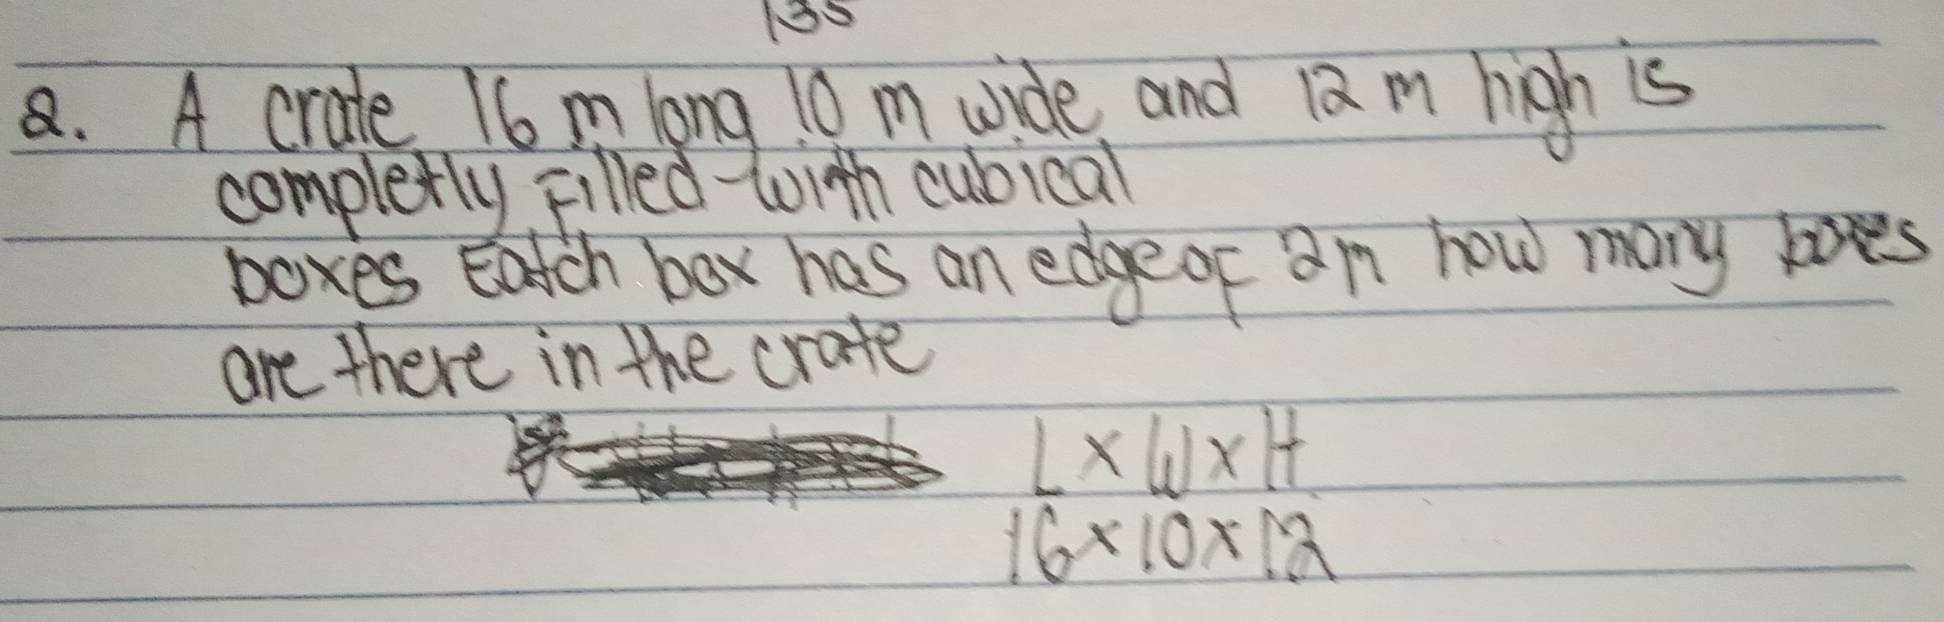 135
2. A crate 16 m long 10 m wide and 12 m high is
completly Filled with cubical
boxes Eatch box has an edge of 2m how many boxes
are there in the crate
L x W x H
16 x 10 x 12